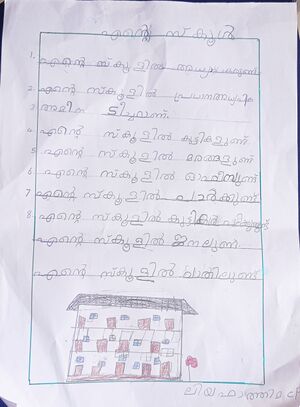 എന്റെ സ്കൂൾ
1. എന്റെ സ്കൂളിൽ
2. എന്റെ സ്കൂളിൽ പ്രധാനഅധ്യപിക
3 അമീന ടീച്ചറാണ്.
4 എന്റെ സ്കൂളിൽ കുട്ടികളുണ്ട്
5 എന്റെ സ്കൂളിൽ മരങ്ങളുണ്ട്
6 എന്റെ സ്കൂളിൽ ഓഫീസുണ്ട്
7 എന്റെ സ്കൂളിൽ പാർക്കുണ്ട്
8 എന്റെ സ്കൂളിൽ
എന്റെ സ്കൂളിൽ ജനലുണ്ട്
എന്റെ സ്കൂളിൽ വാതിലുണ്ട്
ലിയ ഫാത്തിമ